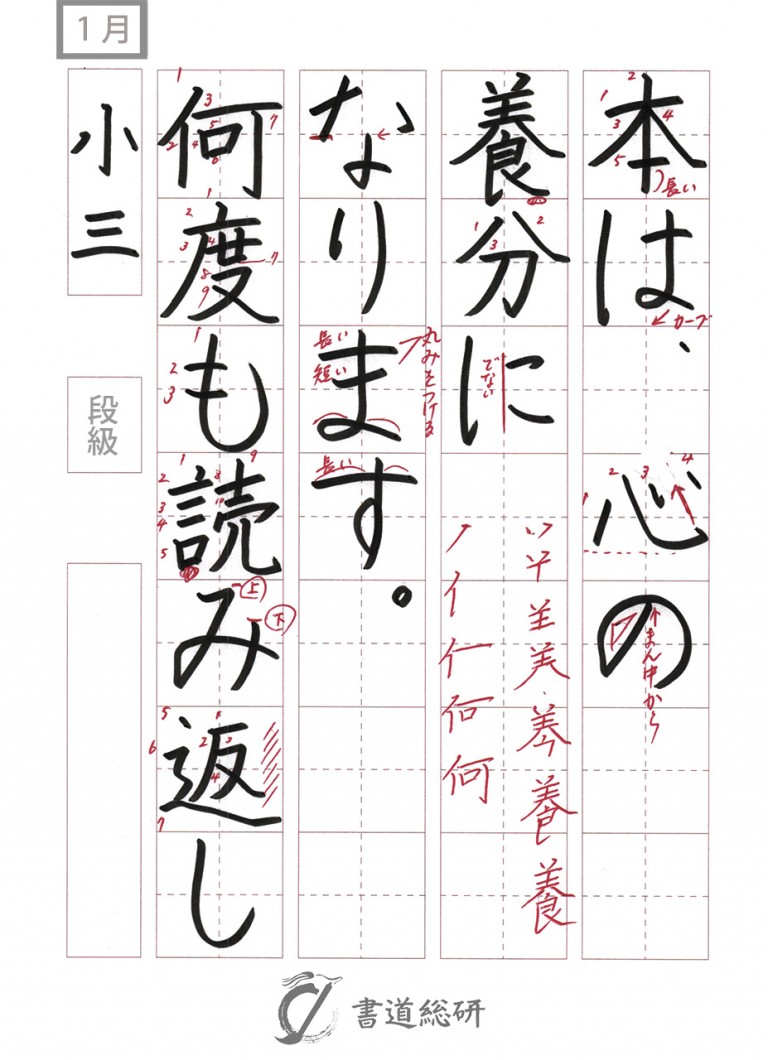 1月
本は、心の
養分に
なります。
何度も読み返し
小三
段級
長い
カーブ
まん中から
でない
丸みをつける
長い
短い
長い
上
下
書道総研